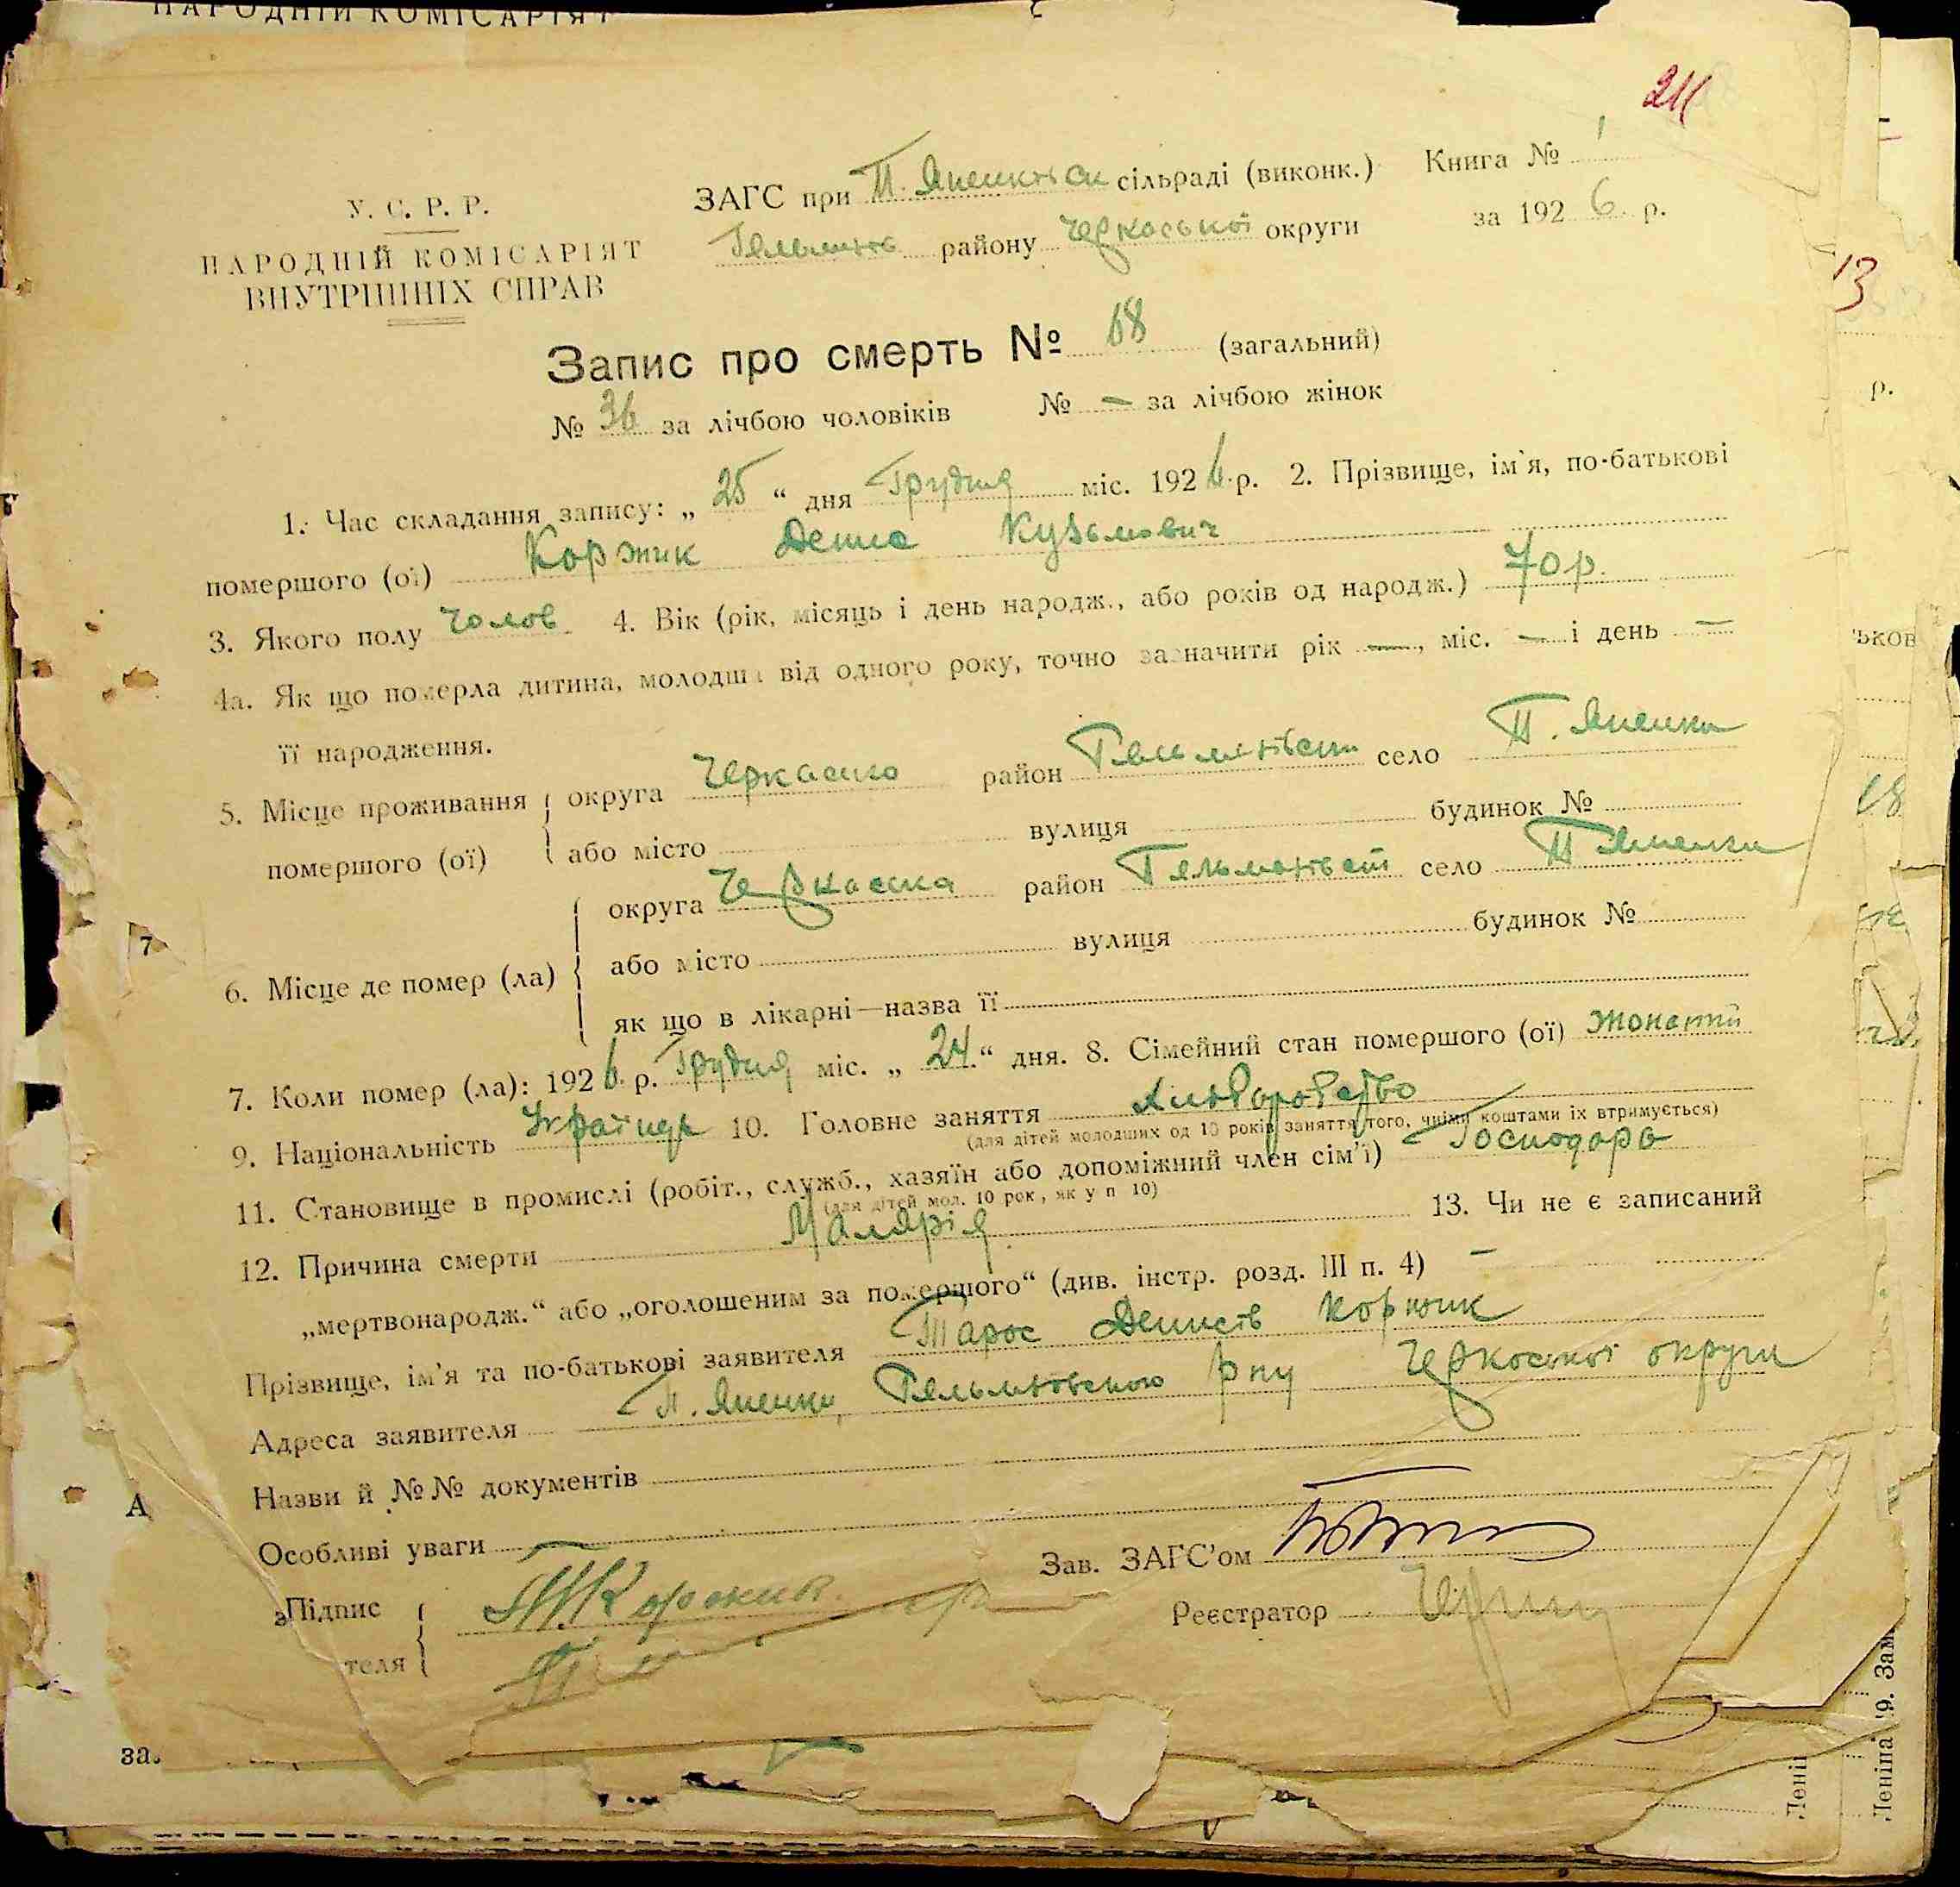 НАРОДНІЙ КОМІСАРІЯТ
У. С. Р. Р.
НАРОДНІЙ КОМІСАРІЯТ
ВНУТРІШНІХ СПРАВ
ЗАГС при сільраді (виконк.) Книга № 1
району Черкаської округи за 1926 р.
13
Запис про смерть № 68 (загальний)
№ 36 за лічбою чоловіків № — за лічбою жінок
р.
1. Час складання запису: „25“ дня Грудня міс. 1926 р. 2. Прізвище, ім'я, по-батькові
помершого (ої) Коржик Денис Кузьмович
3. Якого полу чолов. 4. Вік (рік, місяць і день народж., або років од народж.) 70 р.
4а. Як що померла дитина, молодша від одного року, точно зазначити рік —, міс. — і день —
її народження.
ьков
5. Місце проживання помершого (ої) округа район село
або місто вулиця будинок №
6. Місце де помер (ла) округа Черкаська район село
або місто вулиця будинок №
як що в лікарні—назва її
7
7. Коли помер (ла): 1926 р. Грудня міс. „24“ дня. 8. Сімейний стан помершого (ої) жонатий
9. Національність Українець 10. Головне заняття Хліборобство
(для дітей молодших од 10 років заняття того, чиїми коштами їх втримується)
11. Становище в промислі (робіт., служб., хазяїн або допоміжний член сім'ї) Господарь
(для дітей мол. 10 рок, як у п 10)
12. Причина смерти Малярія 13. Чи не є записаний
„мертвонародж.“ або „оголошеним за помершого“ (див. інстр. розд. III п. 4) —
Прізвище, ім'я та по-батькові заявителя Тарас Денисів Коржик
Адреса заявителя р-ну Черкаської округи
Назви й №№ документів
А
Особливі уваги
Зав. ЗАГС'ом
Підпис Т. Коржик
Реєстратор
теля
за.
Лені
Леніна 19. Зам